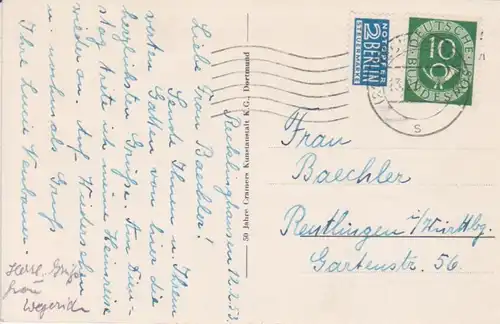 Recklinghausen 12.2.53.
Liebe Frau Baechler!
Sende Ihnen u. Ihrem
werten Gatten von hier die
herzlichsten Grüße. Am Dien-
stag trete ich meine Heimreise
wieder an. Auf Wiedersehn
u. nochmals Gruß
Ihre Lucie Neubauer.
Herzl. Grüße
Frau
50 Jahre Cramers Kunstanstalt K.G., Dortmund
NOTOPFER
2 BERLIN
STEUERMARKE
DEUTSCHE
10
BUNDESPOST
s
Frau
Baechler
Reutlingen i/Württbg.
Gartenstr. 56.